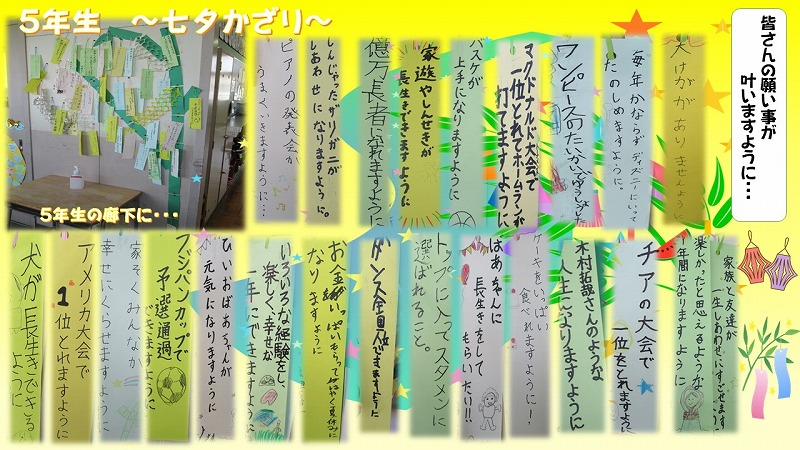 5年生　～七夕かざり～
皆さんの願い事が
叶いますように・・・
5年生の廊下に・・・
大けがが ありませんように
毎年かならずディズニーにいって
たのしめますように。
ワンピースの
マクドナルド大会で
一位とれてホームラン
打てますように
バスケが
上手になりますように
家族やしんせきが
長生きできますように
億万長者になれますように
しんじゃったザリガニが
しあわせになりますように。
ピアノの発表会が
うまくいきますように…
家族と友達が
一生しあわせにすごせます
ように
楽しかったと思えるような
一年間になりますように
チアの大会で
一位をとれますように
木村拓哉さんのような
人生になりますように
ケーキをいっぱい
食べれますように!
ばあちゃんに
長生きをして
もらいたい!!
トップに入ってスタメンに
選ばれること。
ますように
お金がいっぱいもらって
なりますように
いろいろな経験をし、
楽しく幸せな
一年にできますように
ひいおばあちゃんが
元気になりますように
フジパンカップで
予選通過
できますように
家ぞくみんなが
幸せにくらせますように
アメリカ大会で
1位とれますように
犬が長生きできる
ように